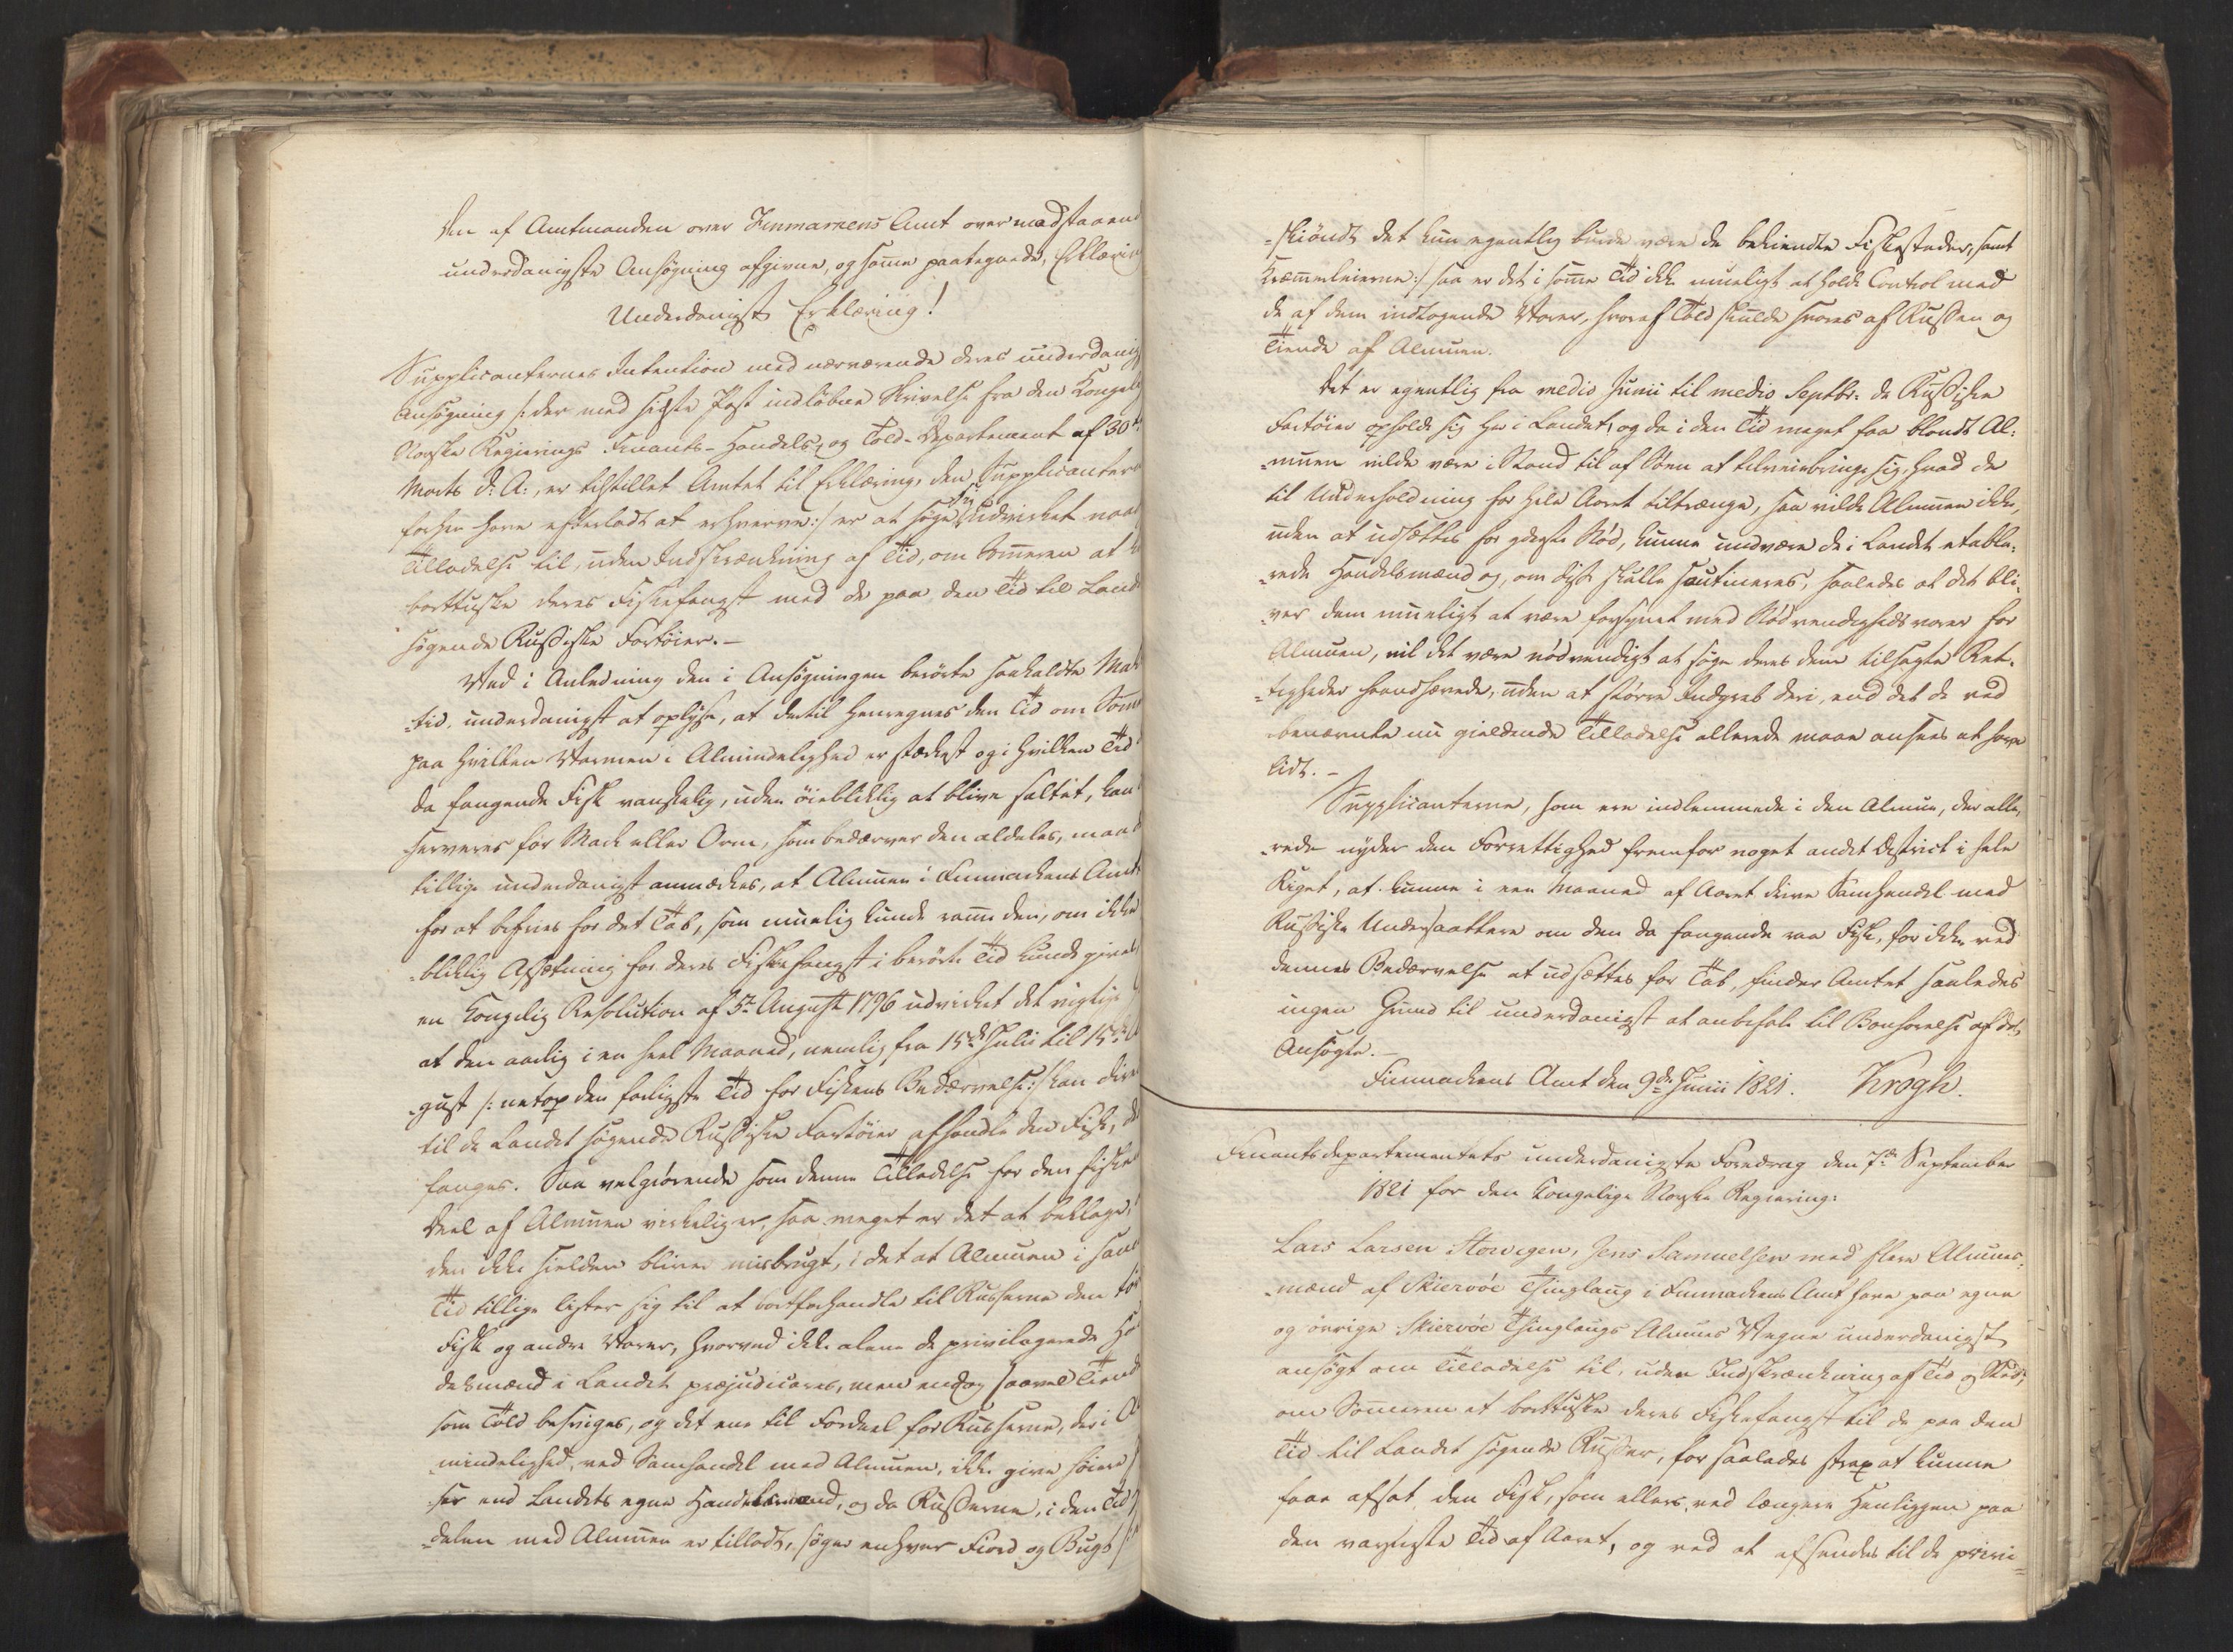 Den af Amtmanden over Finmarkens Amt over medstaaend
underdanigste Ansøgning afgivne, og samme paategnede, Erklæring
Underdanigst Erklæring!
Supplicanternes Intention med nærværende deres underdanig
Ansøgning /: der med sidste Post indløbne Skrivelse fra den Kongel
Norske Regjerings Finants- Handels- og Told-Departement af 30te
Marts d: A:, er tilstillet Amtet til Erklæring, den Supplicanterne
forhen have efterladt at erhverve :/ er at søge sig udvirket naad
Tilladelse til, uden Indskrænkning af Tid, om Sommeren at
borttuske deres Fiskefangst med de paa den Tid til Land
søgende Russiske Fartøier. –
Ved i Anledning den i Ansøgningen berørte saakaldte Mak
-tid, underdanigst at oplyse, at dertil henregnes den Tid om Som
paa hvilken Varmen i Almindelighed er stærkest og i hvilken Tid
da fangende Fisk vanskelig, uden øiebliklig at blive saltet, kan
serveres for Mack eller Orm, som bedærver den aldeles, maae
tillige underdanigst anmærkes, at Almuen i Finmarkens Amt
for at befries for det Tab, som muelig kunde ramme den, om ikke
-bliklig Afsætning for deres Fiskefangst i berørte Tid kunde gives
en Kongelig Resolution af 5te August 1796 udvirket det vigtige
at den aarlig i en heel Maaned, nemlig fra 15de Julii til 15de
-gust /: netop den farligste Tid for Fiskens Bedærvelse :/ kan dire
til de Landet søgende Russiske Fartøier afhandle den Fisk, d
fanges. Saa velgiørende som denne Tilladelse for den fisken
Deel af Almuen virkelig er, saa meget er det at beklage,
den ikke sielden bliver misbrugt, i det at Almuen i sam
Tid tillige lister sig til at bortforhandle til Russerne den tør
Fisk og andre Varer, hvorved ikke alene de privilegerede Ha
delsmænd i Landet præjudiceres, men endog saavel Tiend
som Told besviges, og det ene til Fordeel for Russerne, der i A
-mindelighed, ved Samhandel med Almuen, ikke give høiere
-ser end Landets egne Handelsmænd, og da Russerne, i den Tid
-delen med Almuen er tilladt, søger enhver Fiord og Bugt
-skiøndt det kun egentlig burde være de bekiendte Fiskesteder, samt
Kræmmerleierne :/ saa er det i samme Tid ikke mueligt at holde Control med
de af dem indtagende Varer, hvoraf Told skulde svares af Russen og
Tiende af Almuen.
Det er egentlig fra medio Junii til medio Septbr: de Russiske
Fartøier opholde sig her i Landet, og da i den Tid meget faa blandt Al:
-muen vilde være i Stand til af Søen at tilveiebringe sig, hvad de
til Underholdning for hele Aaret tiltrænge, saa vilde Almuen ikke,
uden at udsættes for yderste Nød, kunne undvære de i Landet etable:
-rede Handelsmænd og, om disse skulle soutineres, saaledes at det bli:
-ver dem mueligt at være forsynet med Nødvendighedsvarer for
Almuen, vil det være nødvendigt at søge deres dem tilsagte Ret-
-tigheder haandhævede, uden at større Indgreb deri, end det de ved
benævnte nu gieldende Tilladelse allerede maae ansees at have
lidt. –
Supplicanterne, som ere indlemmede i den Almue, der alle,
-rede nyder den Forrettighed fremfor noget andet District i hele
Riget, at kunne i een Maaned af Aaret drive Samhandel med
Russiske Undersaattere om den da fangende raa Fisk, for ikke ved
dennes Bedærvelse at udsættes for Tab, finder Amtet saaledes
ingen Grund til underdanigst at anbefale til Bønhørelse af det
Ansøgte. –
Finmarkens Amt den 9de Junii 1821. Krogh.
Finantsdepartementets underdanigste Foredrag den 7de September
1821 for den Kongelige Norske Regiering:
Lars Larsen Storvigen, Jens Samuelsen med flere Almues-
-mænd af Skiervøe Thinglaug i Finmarkens Amt have paa egne
og øvrige Skiervøe Thinglaugs Almues Vegne underdanigst
ansøgt om Tilladelse til, uden Indskrænkning af Tid og Sted,
om Sommeren at borttuske deres Fiskefangst til de paa den
Tid til Landet søgende Russer, for saaledes strax at kunne
faae afsat den Fisk, som ellers, ved længere Henliggen paa
den varmeste Tid af Aaret, og ved at afsendes til de privi-